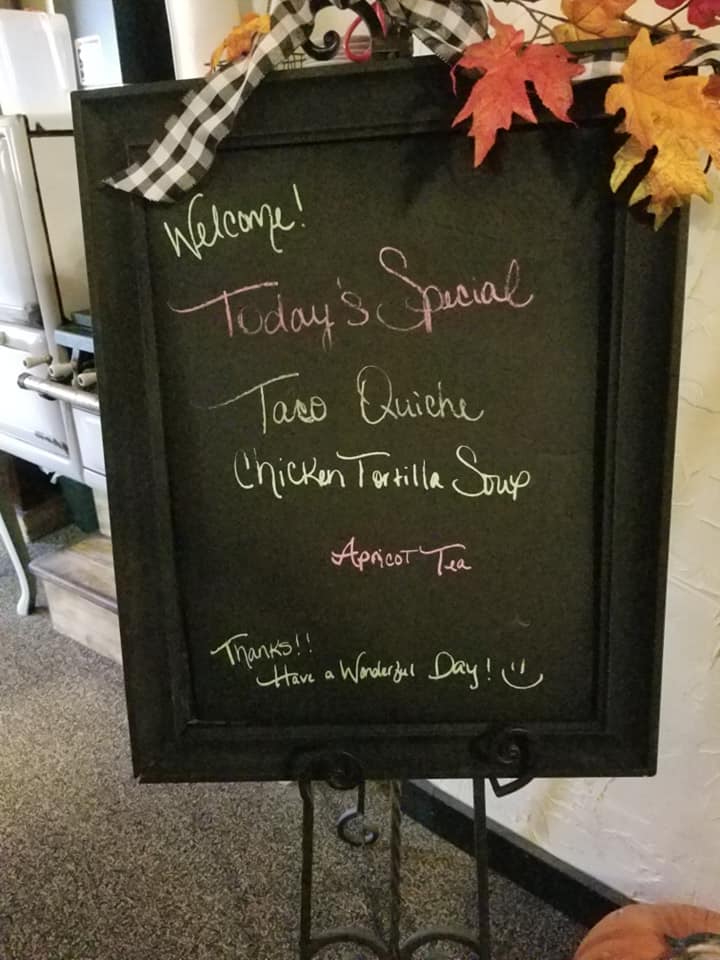 Welcome!
Today's Special
Taco Quiche
Chicken Tortilla Soup
Apricot Tea
Thanks!!
Have a Wonderful Day! :)